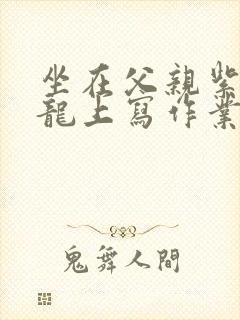 坐在父親紫
龍上寫作業
鬼舞人間